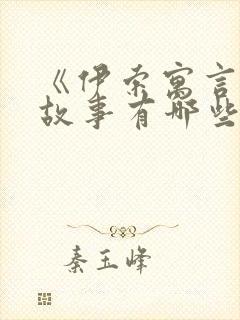 《伊索寓言
故事有哪些
秦玉峰